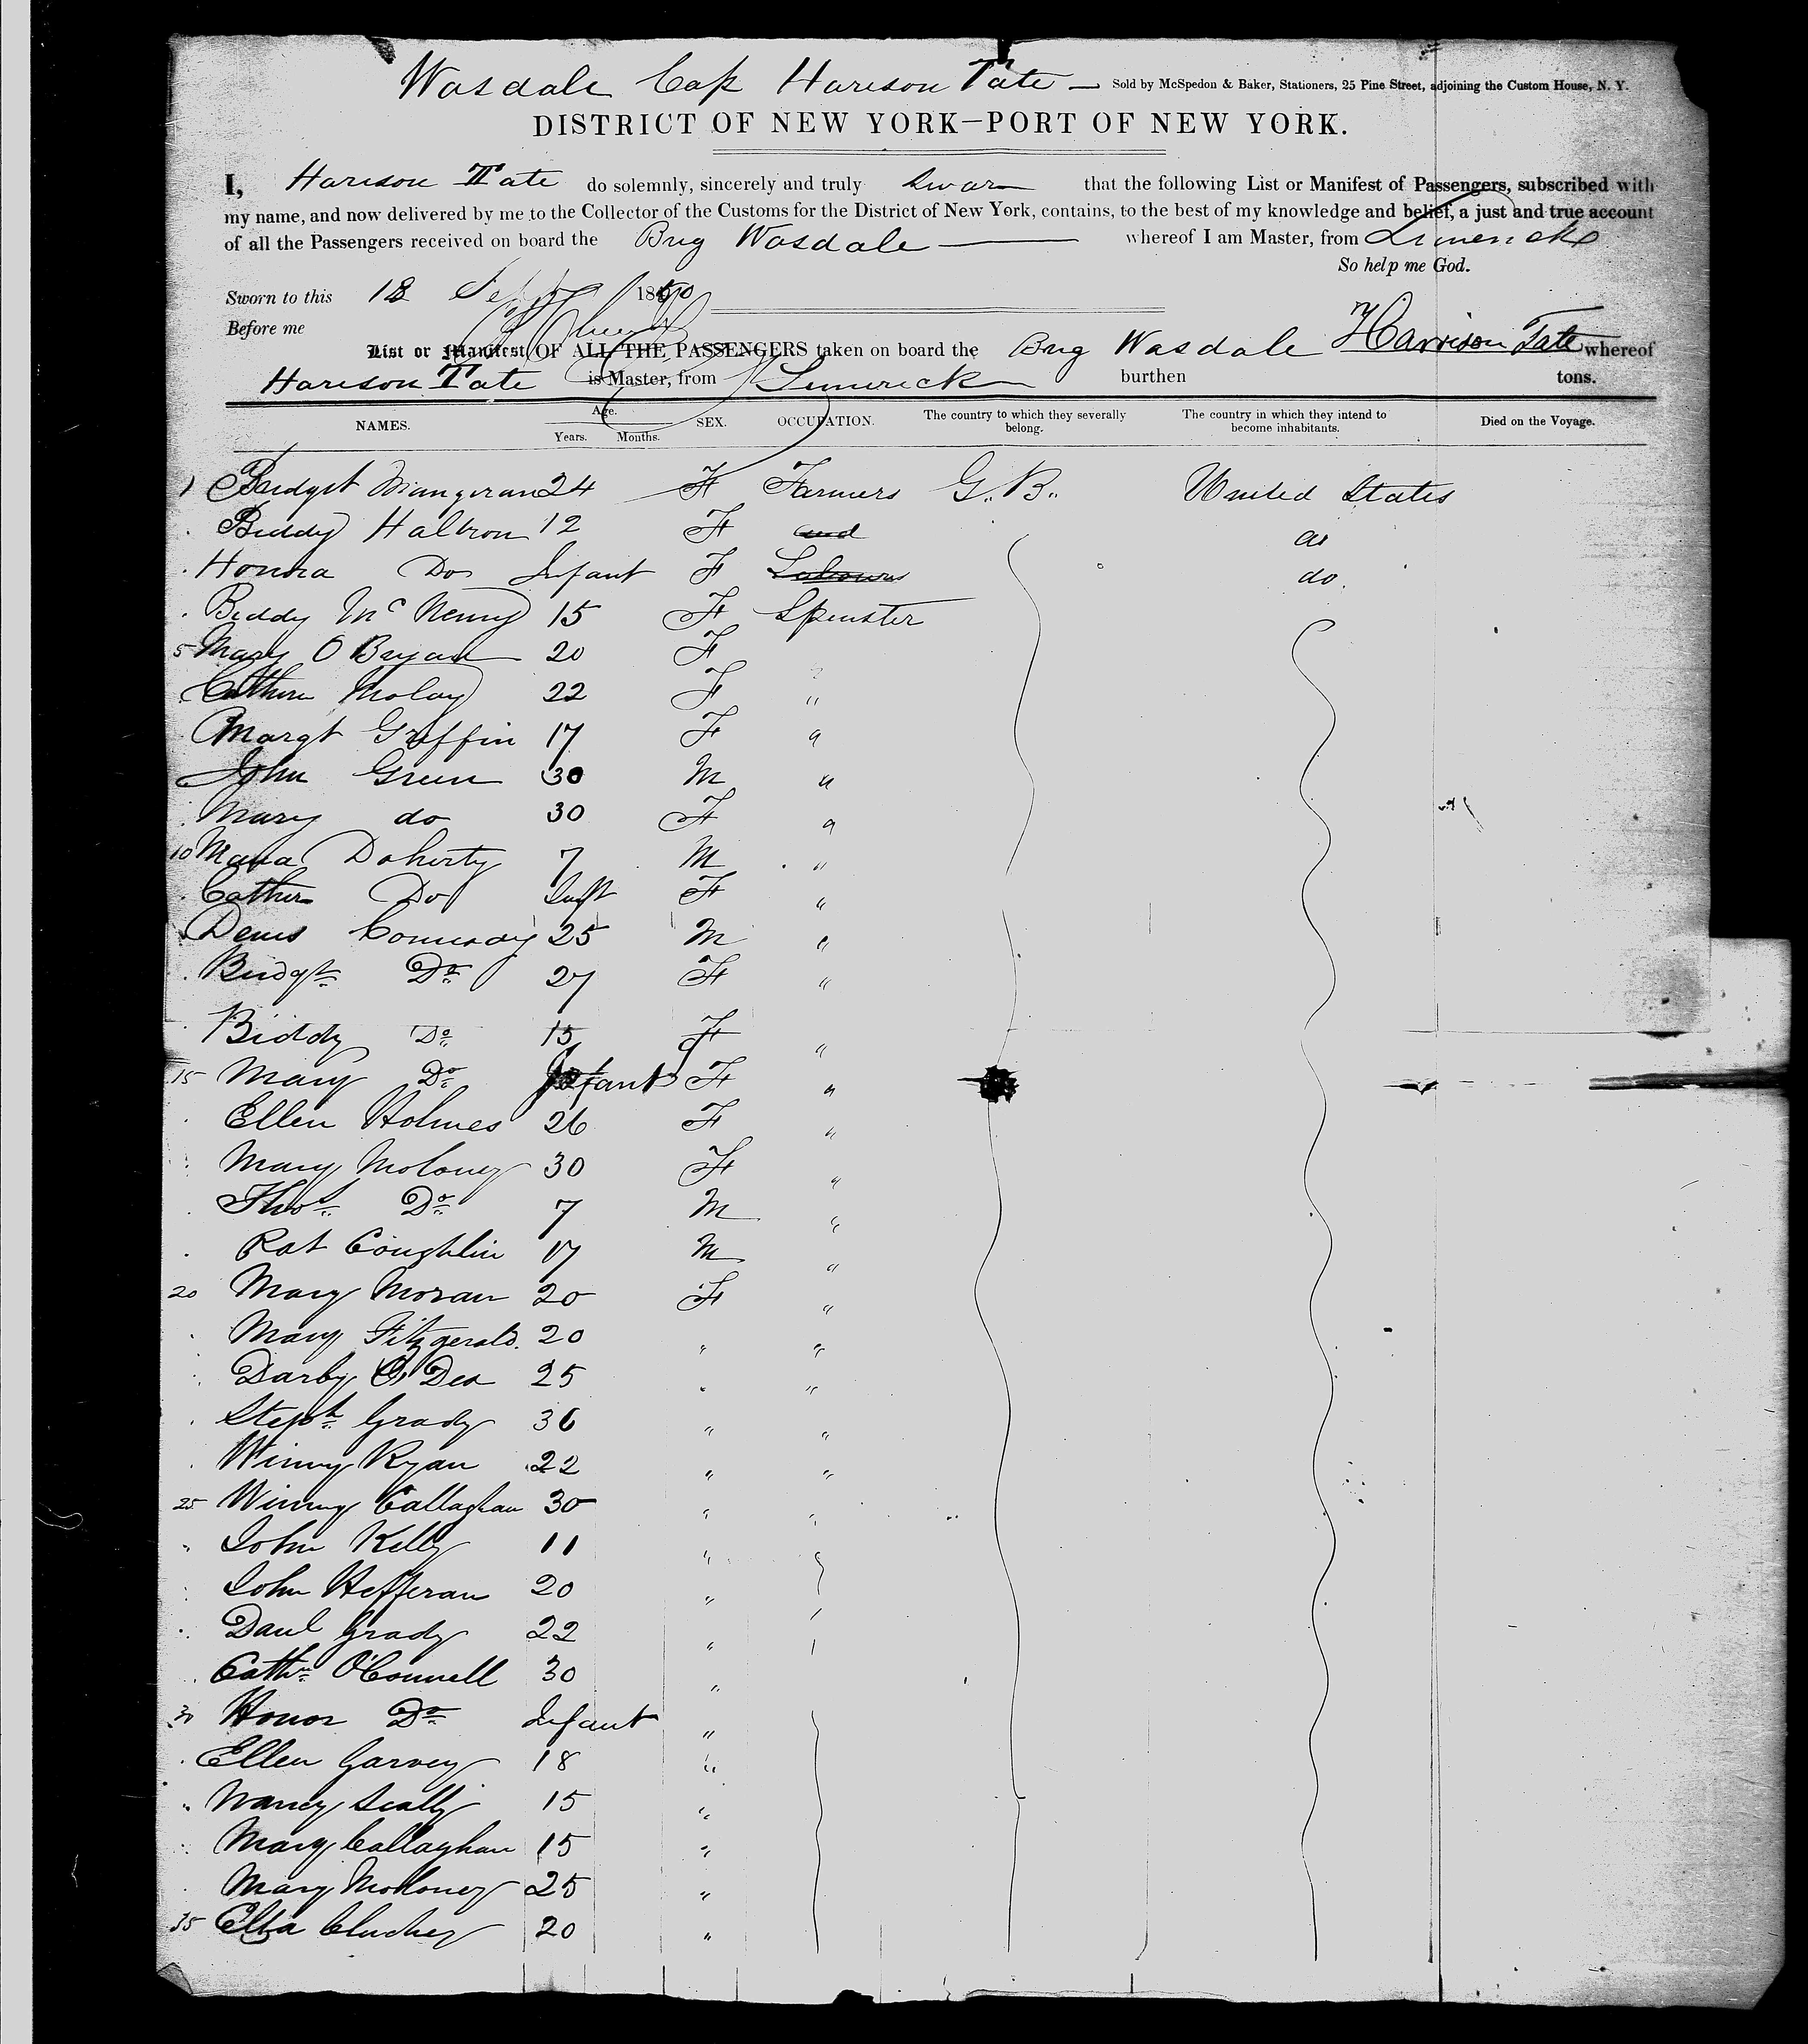 Wasdale Cap Harison Tate — Sold by McSpedon & Baker, Stationers, 25 Pine Street, adjoining the Custom House, N. Y.
DISTRICT OF NEW YORK—PORT OF NEW YORK.
I, Harison Tate do solemnly, sincerely and truly swar that the following List or Manifest of Passengers, subscribed with
my name, and now delivered by me to the Collector of the Customs for the District of New York, contains, to the best of my knowledge and belief, a just and true account
of all the Passengers received on board the Brig Wasdale — whereof I am Master, from Limerick
So help me God.
Sworn to this 18 Sept 1850
Before me
List or Manifest OF ALL THE PASSENGERS taken on board the Brig Wasdale Harrison Tate whereof
Harison Tate is Master, from Limerick burthen tons.
NAMES. Age. Years. Months. SEX. OCCUPATION. The country to which they severally belong. The country in which they intend to become inhabitants. Died on the Voyage.
1 Bridget 24 F Farmers G.B. United States
Biddy Halbron 12 F and do
Honora Do Infant F Labourers do.
Biddy Mc Nemy 15 F Spinster
5 Mary O Bryan 20 F
Cathern Molay 22 F "
Margt Griffin 17 F "
John Green 30 M "
Mary do 30 F "
10 Doherty 7 M "
Cathern Do Inft F "
Denis 25 M "
Bridgt Do 27 F "
Biddy Do 15 F "
15 Mary Do Infant F "
Ellen Holmes 26 F "
Mary Moloney 30 F "
Thos Do 7 M "
Pat Coughlin 17 M "
20 Mary Moran 20 F "
Mary Fitzgerald. 20 " "
Darby O Dea 25 " "
Steph Grady 36 " "
Winny Ryan 22 " "
25 Winny Callaghan 30 " "
John Kelly 11 "
John Hefferan 20 "
Danl Grady 22 "
Cathn O'Connell 30 "
30 Honor Do Infant "
Ellen Garvey 18 "
Nancy Scally 15 "
Mary Callaghan 15 "
Mary Moloney 25 "
35 20 "